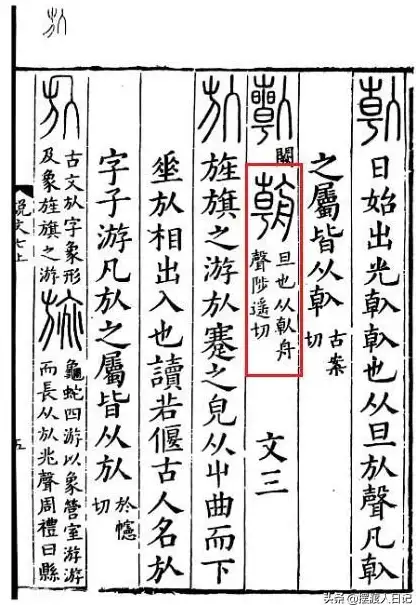 倝日始出光倝倝也从旦㫃聲凡倝
之屬皆从倝 古案
切
𠦝闕朝旦也从倝舟
聲陟遥切
文三
㫃旌旗之游㫃蹇之皃从屮曲而下
垂㫃相出入也讀若偃古人名㫃
字子游凡㫃之屬皆从㫃 於幰
切
㫃古文㫃字象形
及象旌旗之游
旐龜蛇四游以象營室游游
而長从㫃兆聲周禮曰縣
說文七上
五
㫃
头条
人日记